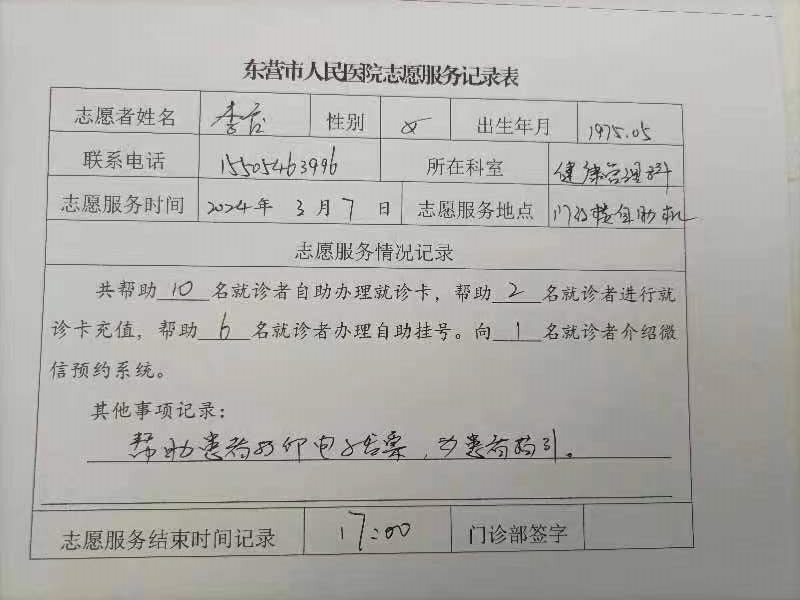 东营市人民医院志愿服务记录表
志愿者姓名 李 性别 女 出生年月 1975.05
联系电话 15505463996 所在科室 健康管理科
志愿服务时间 2024年 3月 7日 志愿服务地点 门诊楼自助机
志愿服务情况记录
共帮助10名就诊者自助办理就诊卡，帮助2名就诊者进行就
诊卡充值，帮助6名就诊者办理自助挂号。向1名就诊者介绍微
信预约系统。
其他事项记录：
帮助患者打印电子发票，为患者指引。
志愿服务结束时间记录 17:00 门诊部签字